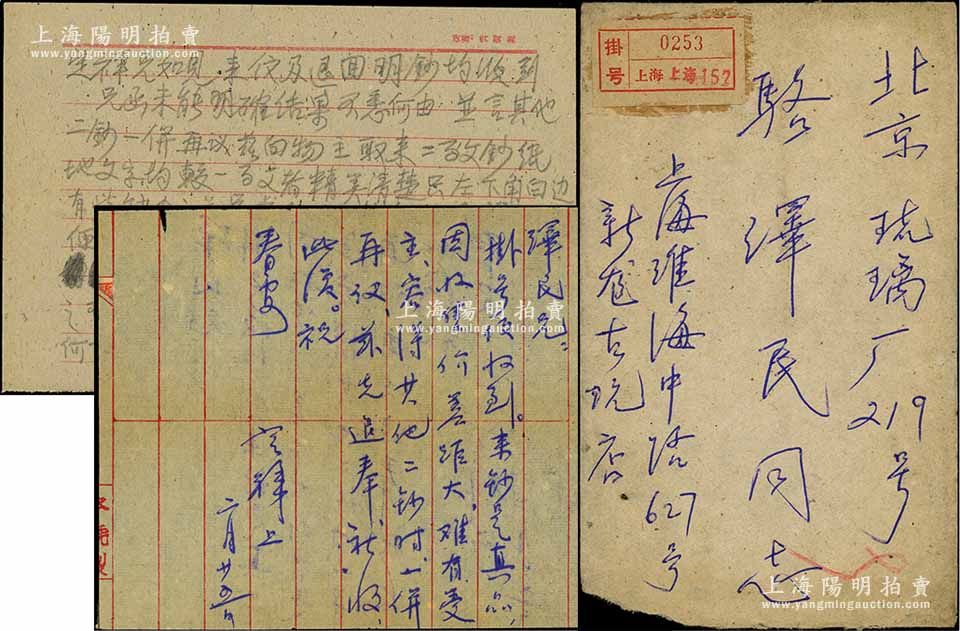 上海陽明拍賣
www.yangmingauction.com
定祥兄如見 来仪及退回明鈔均收到
兄函未能明確结果不悉何由 並言其他
二鈔一併再议 兹向物主取来二百文鈔纸
地文字均較一百文者精美清楚只左下角白边
有
便
之
何
澤民兄:
掛号信收到。来鈔是真品,
因收售价差距大,难有受
主,容待其他二鈔时一併
再仪、兹先退奉,祈收,
此复。祝
春安
定祥上
二月廿五日
上海陽明拍賣
www.yangmingauction.com
掛号
0253
上海 上海152
北京琉璃厂219号
駱澤民同志
上海淮海中路627号
新龙古玩店
上海陽明拍賣
www.yangmingauction.com